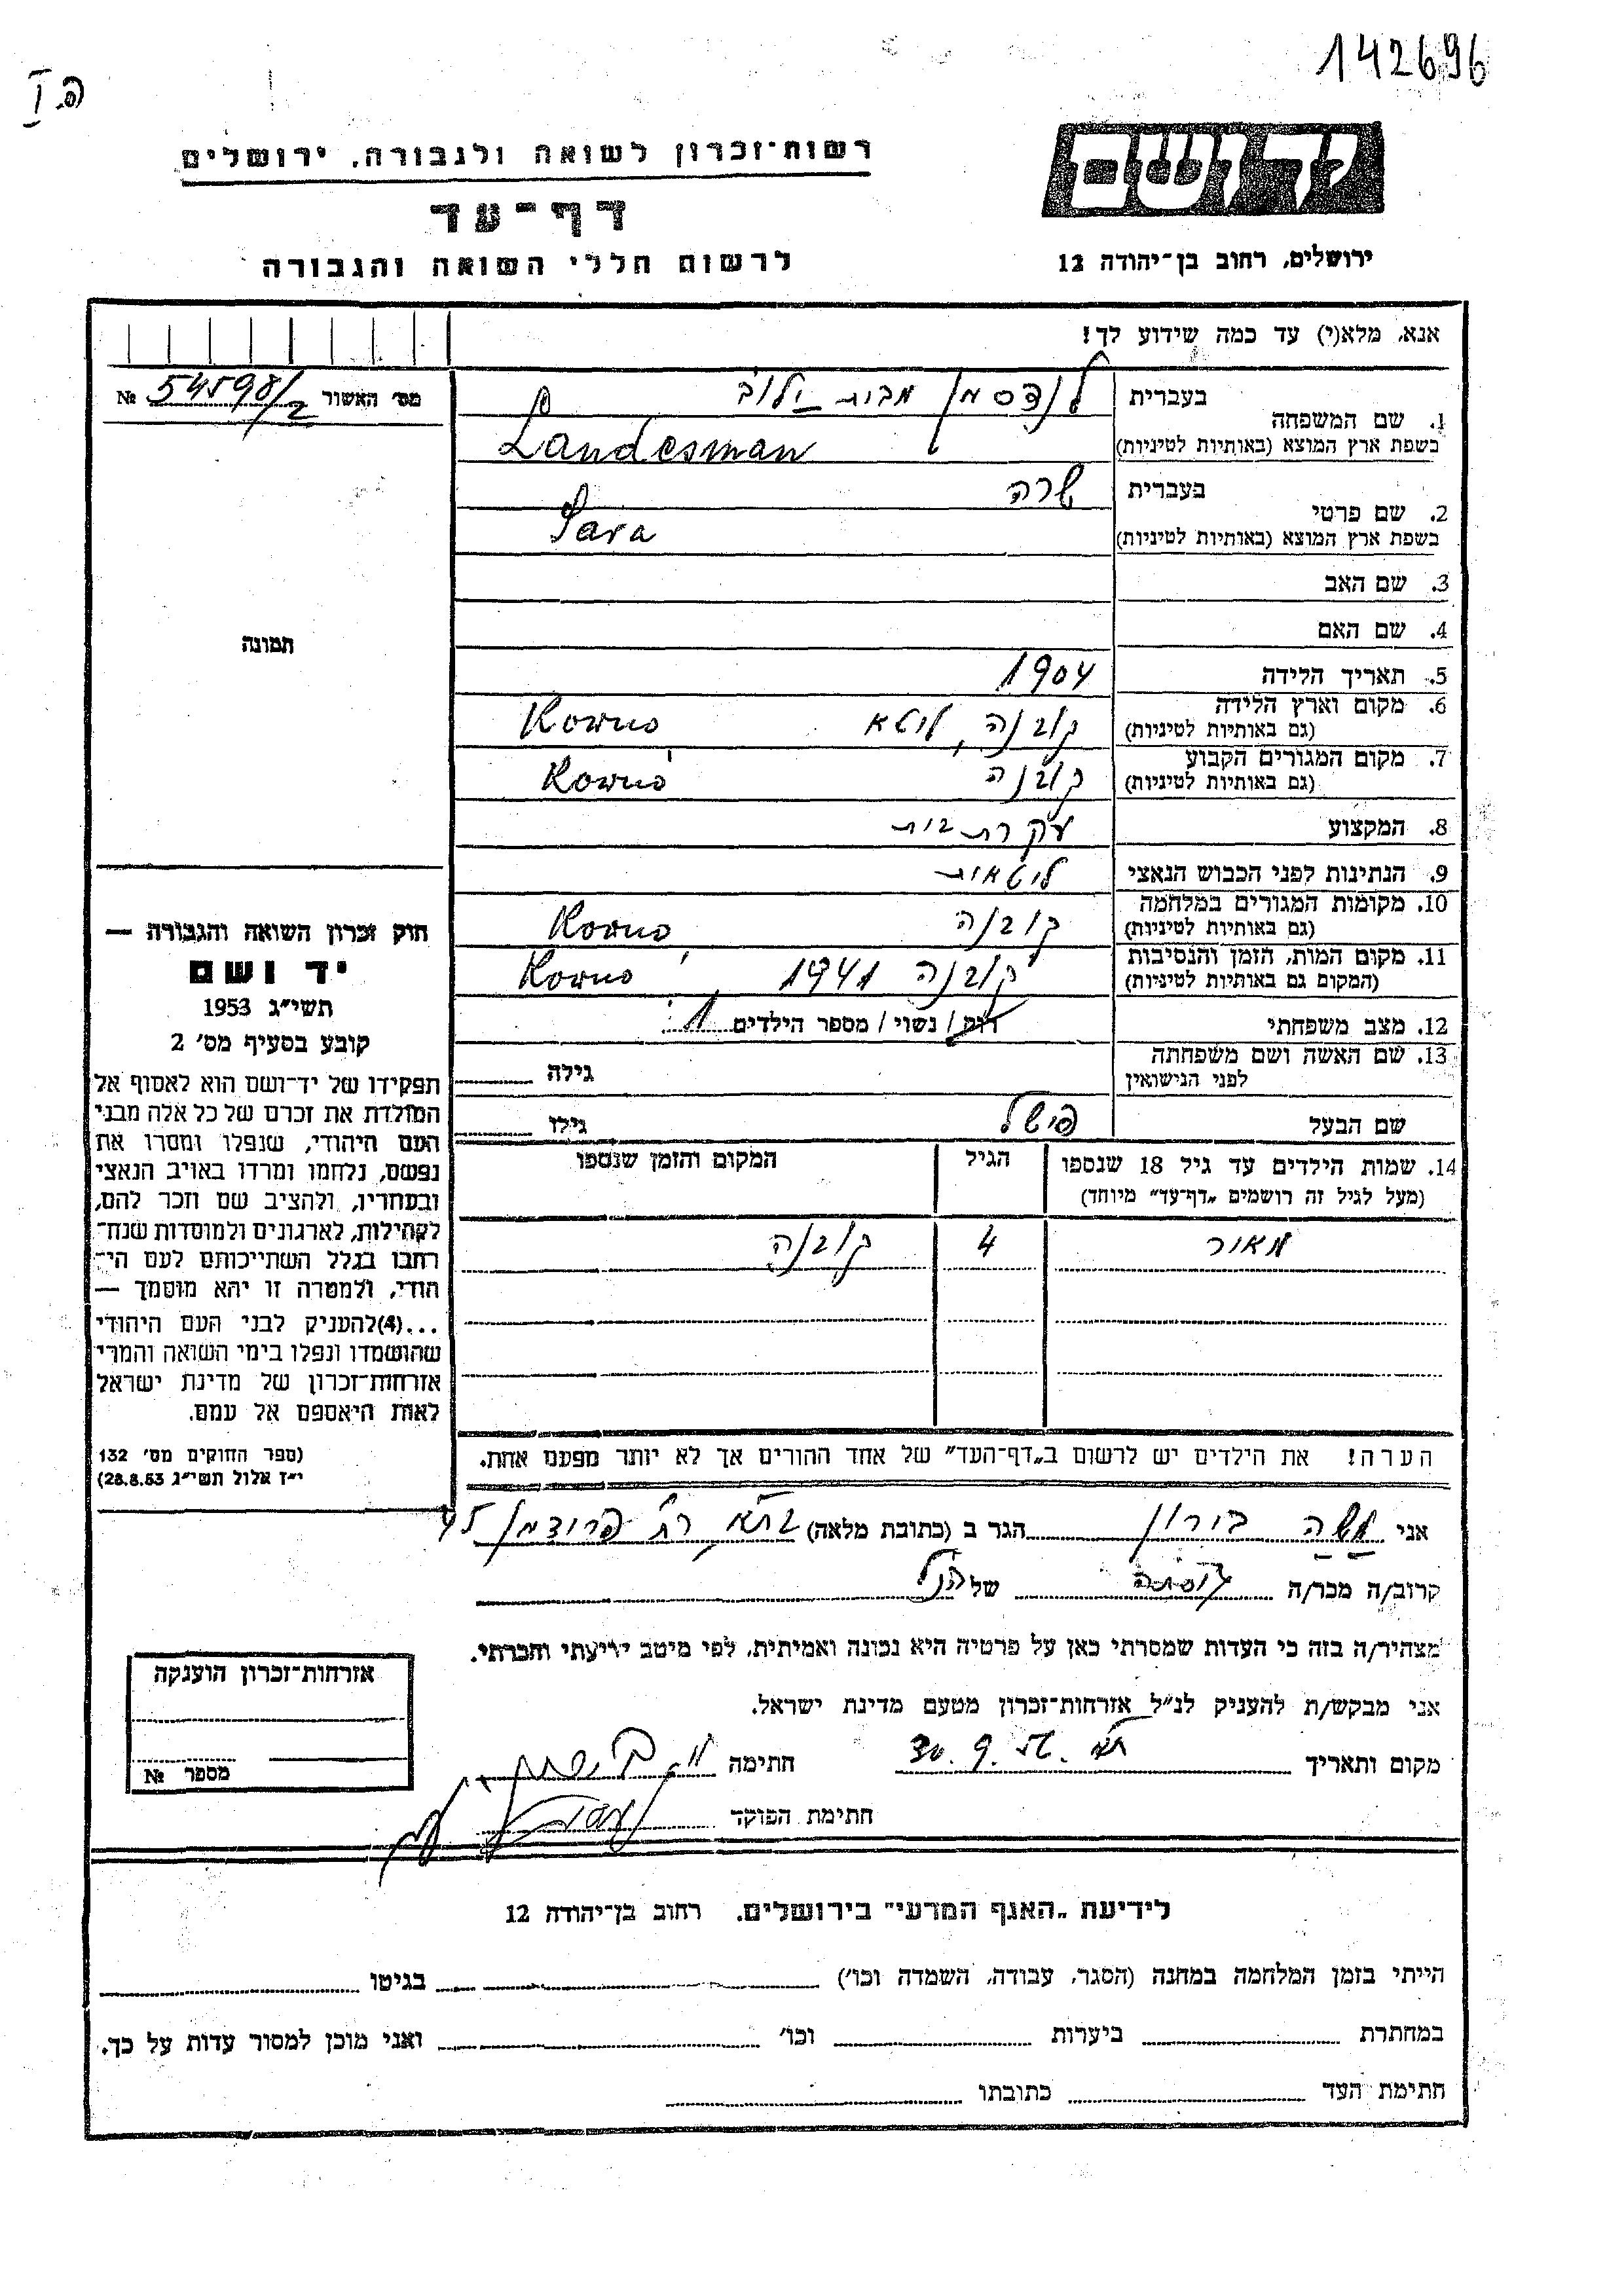 142696
פ.I
יד ושם
רשות־זכרון לשואה ולגבורה, ירושלים
דף־עד
לרשום חללי השואה והגבורה
ירושלים, רחוב בן־יהודה 12
אנא, מלא(י) עד כמה שידוע לך!
מס׳ האשור № 54598/2
1. שם המשפחה
בעברית לנדסמן מבית
בשפת ארץ המוצא (באותיות לטיניות) Landesman
2. שם פרטי
בעברית שרה
בשפת ארץ המוצא (באותיות לטיניות) Sara
3. שם האב
4. שם האם
5. תאריך הלידה 1904
6. מקום וארץ הלידה
(גם באותיות לטיניות) קובנה, ליטא Kowno
7. מקום המגורים הקבוע
(גם באותיות לטיניות) קובנה Kowno
8. המקצוע עקרת בית
9. הנתינות לפני הכבוש הנאצי ליטאית
10. מקומות המגורים במלחמה
(גם באותיות לטיניות) קובנה Kowno
11. מקום המות, הזמן והנסיבות
(המקום גם באותיות לטיניות) קובנה 1941 Kowno
12. מצב משפחתי רווק / נשוי / מספר הילדים 1
13. שם האשה ושם משפחתה
לפני הנישואין גילה
שם הבעל פישל גילו
14. שמות הילדים עד גיל 18 שנספו
(מעל לגיל זה רושמים „דף־עד״ מיוחד)
הגיל
המקום והזמן שנספו
מאיר 4 קובנה
הערה! את הילדים יש לרשום ב„דף־העד״ של אחד ההורים אך לא יותר מפעם אחת.
תמונה
חוק זכרון השואה והגבורה —
יד ושם
תשי״ג 1953
קובע בסעיף מס׳ 2
תפקידו של יד־ושם הוא לאסוף אל
המולדת את זכרם של כל אלה מבני
העם היהודי, שנפלו ומסרו את
נפשם, נלחמו ומרדו באויב הנאצי
ובעוזריו, ולהציב שם וזכר להם,
לקהילות, לארגונים ולמוסדות שנח־
רבו בגלל השתייכותם לעם הי־
הודי, ולמטרה זו יהא מוסמך —
...(4) להעניק לבני העם היהודי
שהושמדו ונפלו בימי השואה והמרי
אזרחות־זכרון של מדינת ישראל
לאות היאספם אל עמם.
(ספר החוקים מס׳ 132
י״ז אלול תשי״ג 28.8.53)
אני משה בורון הגר ב (כתובת מלאה) ת״א
קרוב/ה מכר/ה של הנ״ל
מצהיר/ה בזה כי העדות שמסרתי כאן על פרטיה היא נכונה ואמיתית, לפי מיטב ידיעתי והכרתי.
אני מבקש/ת להעניק לנ״ל אזרחות־זכרון מטעם מדינת ישראל.
מקום ותאריך ת״א 30.9.56 חתימה
חתימת הפוקד
אזרחות־זכרון הוענקה
מספר №
לידיעת „האגף המדעי״ בירושלים, רחוב בן־יהודה 12
הייתי בזמן המלחמה במחנה (הסגר, עבודה, השמדה וכו׳) בגיטו
במחתרת ביערות וכו׳ ואני מוכן למסור עדות על כך.
חתימת העד כתובתו